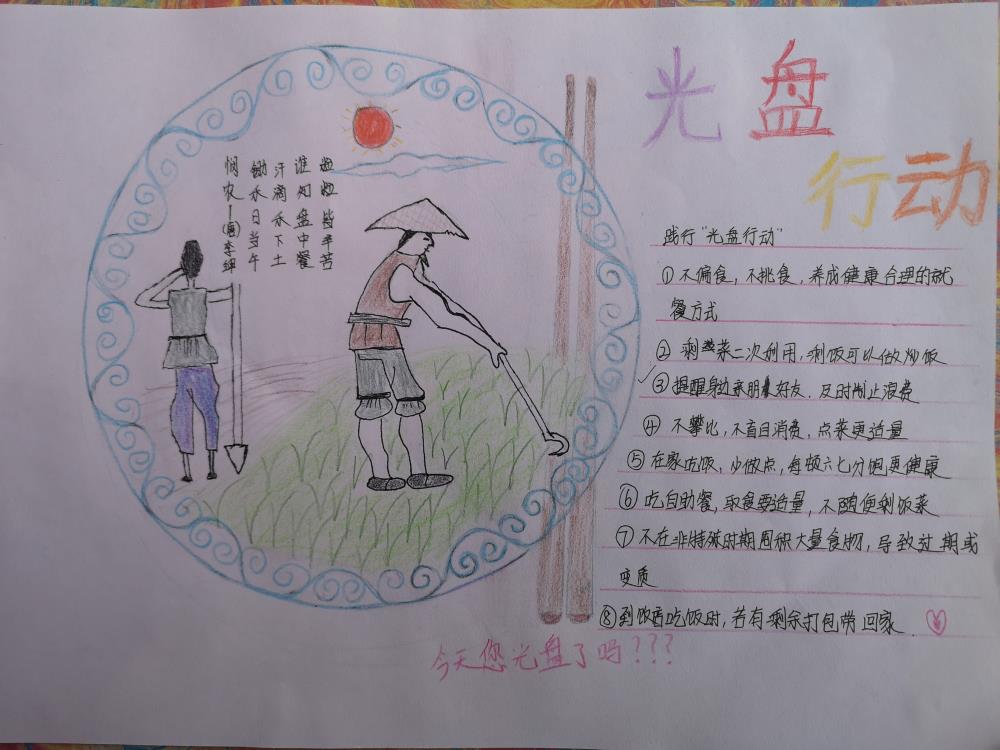 光盘
行动
悯农
(唐)李绅
锄禾日当午
汗滴禾下土
谁知盘中餐
粒粒皆辛苦
践行"光盘行动"
①不偏食,不挑食,养成健康合理的就
餐方式
②剩菜二次利用,剩饭可以做炒饭
③提醒身边亲朋好友.及时制止浪费
④不攀比,不盲目消费,点菜更适量
⑤在家吃饭,少做点,每顿六七分饱更健康
⑥吃自助餐,取食要适量,不随便剩饭菜
⑦不在非特殊时期囤积大量食物,导致过期或
变质
⑧到饭店吃饭时,若有剩余打包带回家
今天您光盘了吗???